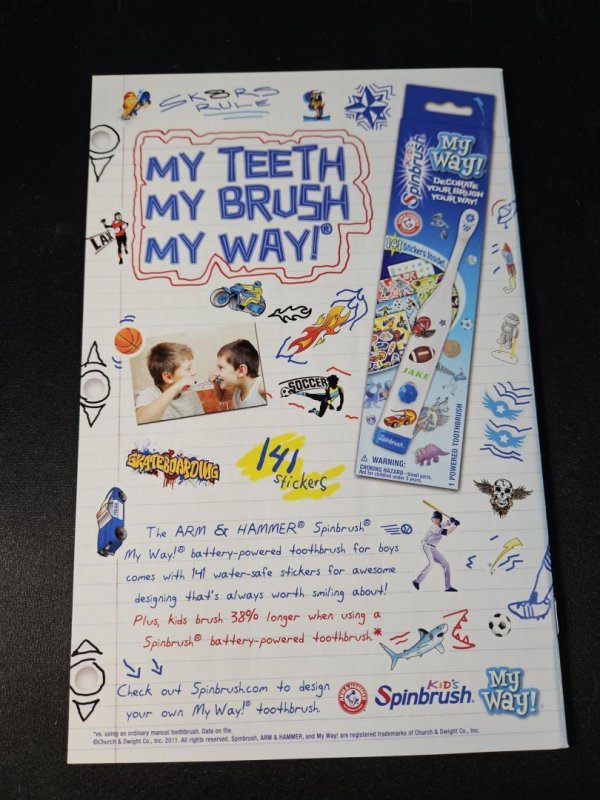 SK8RS
RULE
MY TEETH
MY BRUSH
MY WAY!®
LAX
KID'S
Spinbrush
My
Way!
DECORATE
YOUR BRUSH
YOUR WAY!
ARM & HAMMER
141 Stickers Inside!
JAKE
Spinbrush
⚠ WARNING:
CHOKING HAZARD - Small parts.
Not for children under 3 years.
1 POWERED TOOTHBRUSH
SOCCER
SKATEBOARDING
141
stickers
The ARM & HAMMER® Spinbrush®
My Way!® battery-powered toothbrush for boys
comes with 141 water-safe stickers for awesome
designing that's always worth smiling about!
Plus, kids brush 38% longer when using a
Spinbrush® battery-powered toothbrush.*
Check out Spinbrush.com to design
your own My Way!® toothbrush.
ARM & HAMMER
KID'S
Spinbrush®
My
Way!
*vs. using an ordinary manual toothbrush. Data on file.
©Church & Dwight Co., Inc. 2011. All rights reserved. Spinbrush, ARM & HAMMER, and My Way! are registered trademarks of Church & Dwight Co., Inc.